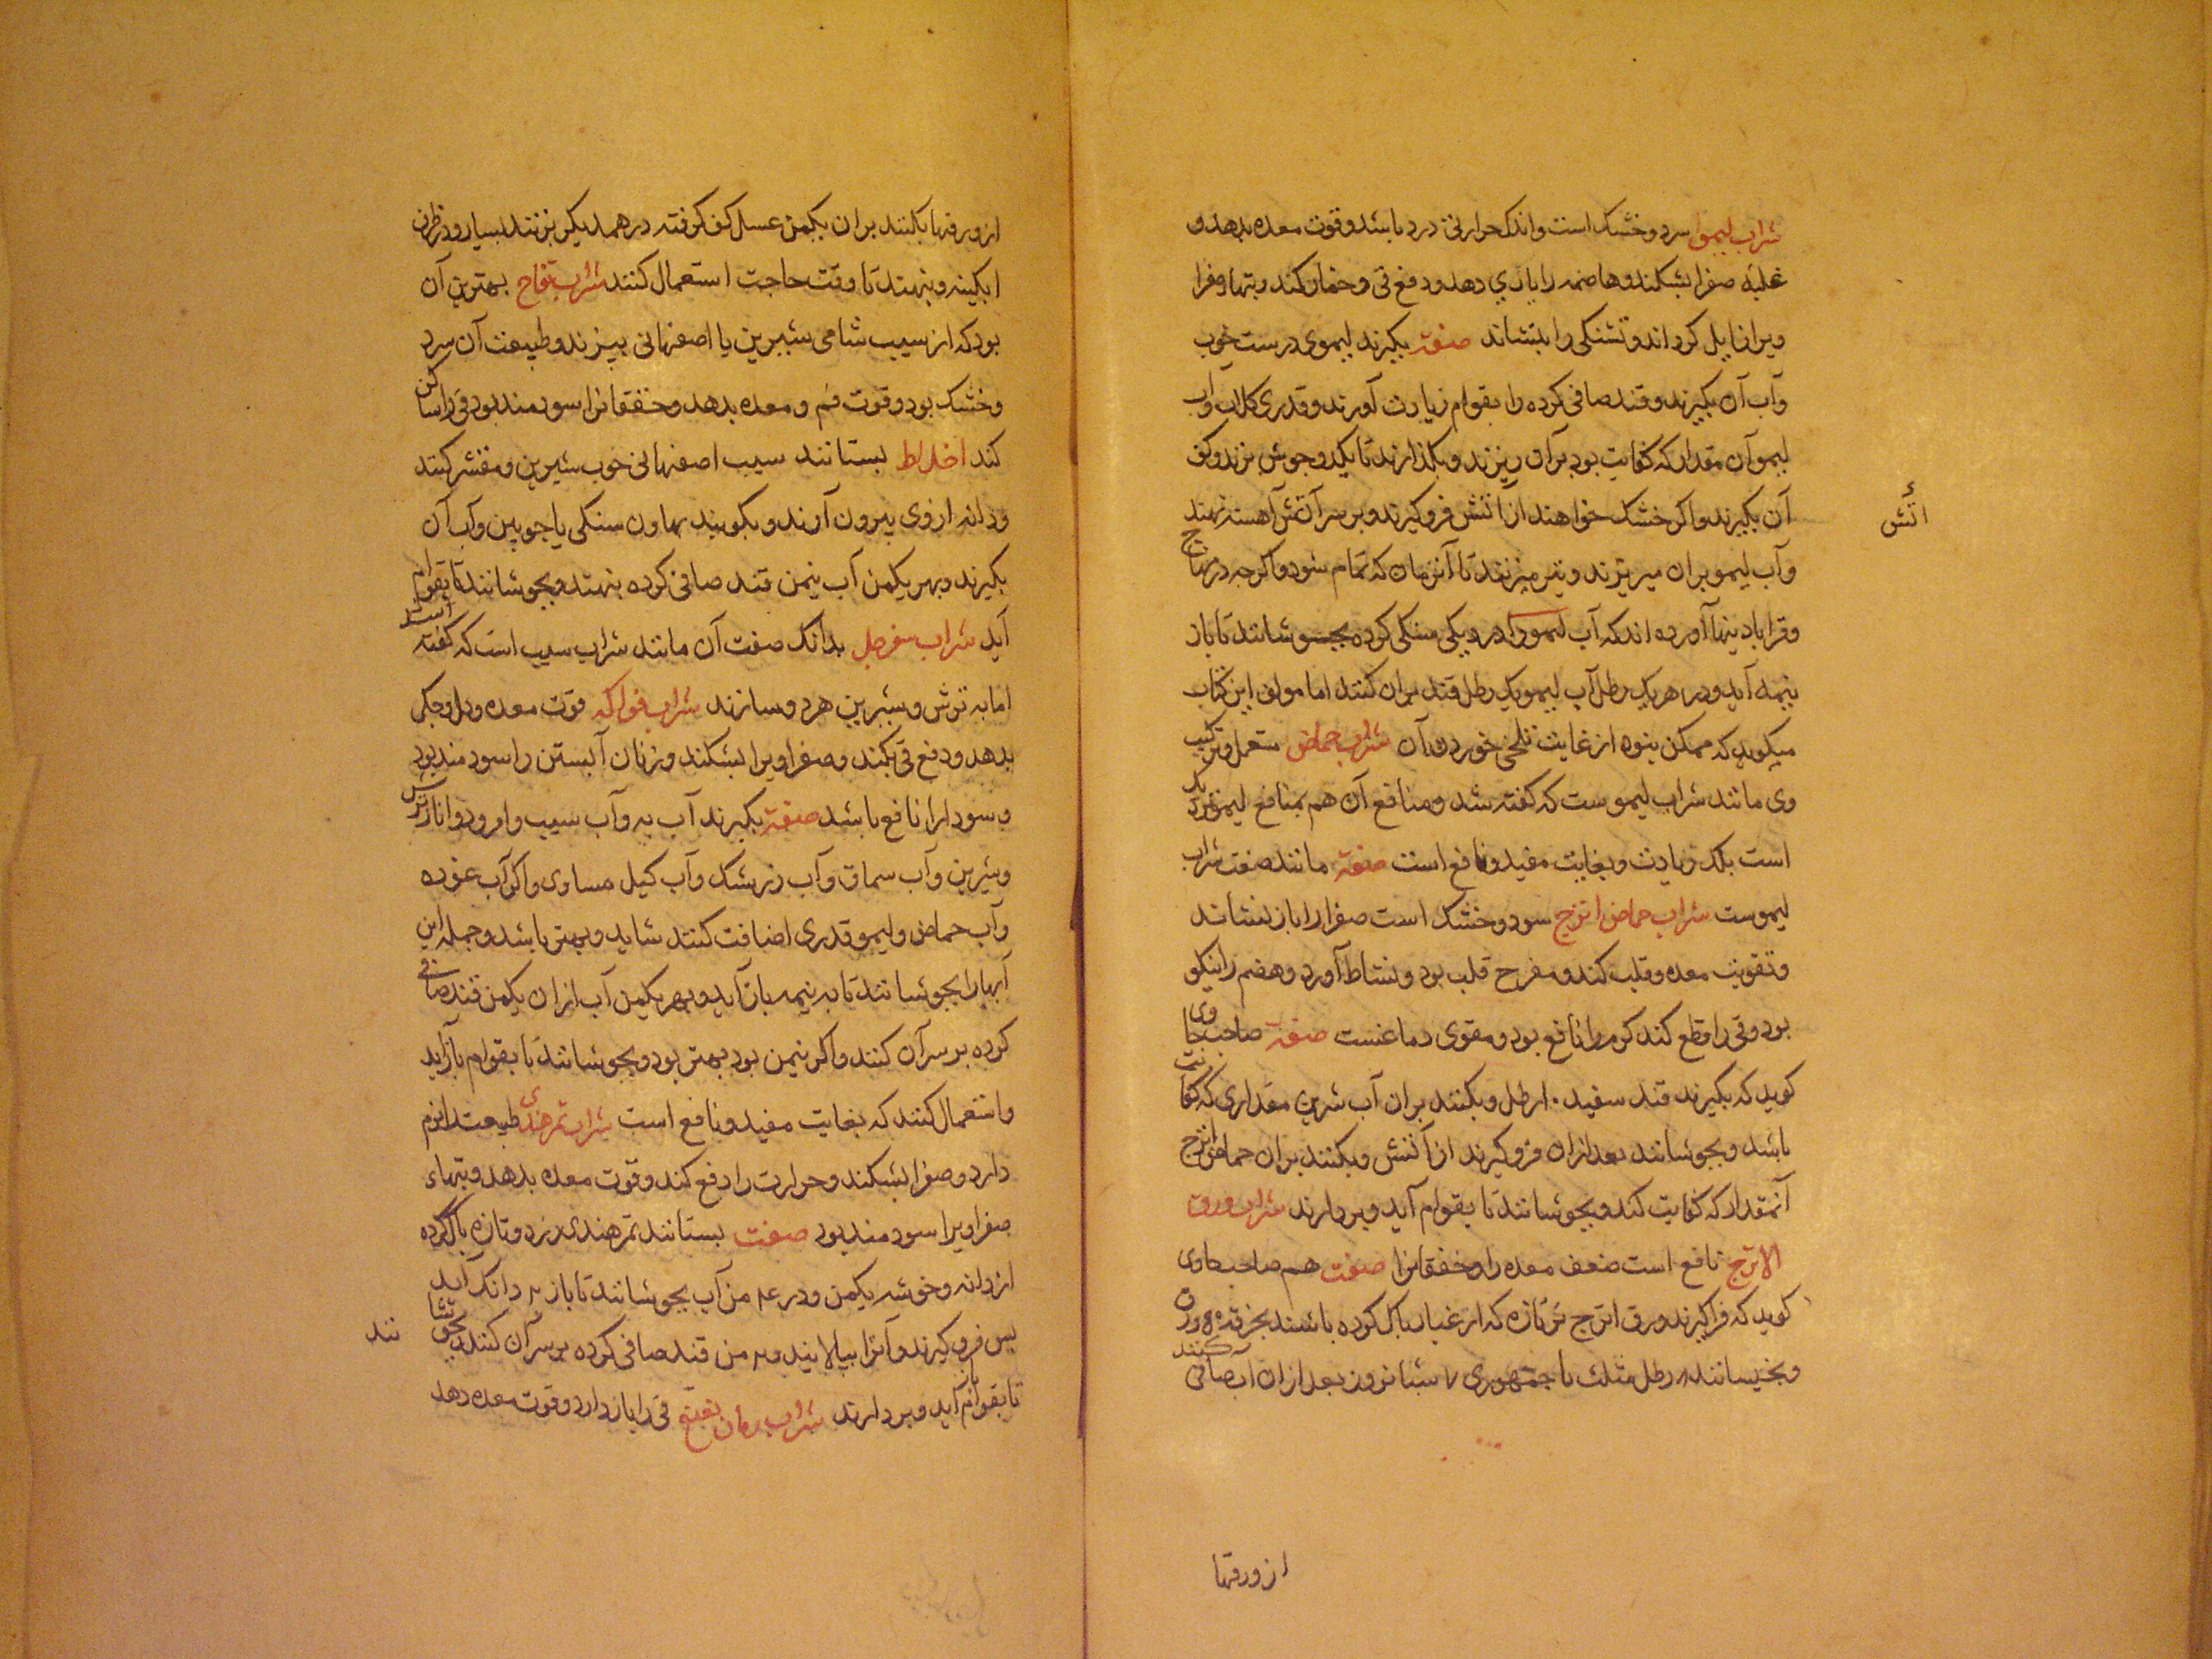 شراب لیمو سرد و خشک است و اندک حرارتی درد باشد و قوت معده بدهد و
غلبهٔ صفرا بشکند و هاضمه را یاری دهد و دفع قی و خمار کند و تبهاء صفرا
ویرا زایل کرداند و تشنکی را بنشاند صفته بکیرند لیموی درست خوب
وآب آن بکیرند و قند صافی کرده را بقوام زیادت آورند و قدری کلاب وآب
لیمو آن مقدار که کفایت بود بران ریزند و بکذارند تا یکدو جوش بزند و کف
آن بکیرند و اکر خشک خواهند از آتش فرو کیرند و بر سر آتش آهسته نهند
اتش
وآب لیمو بران میریزند و نیز میزنند تا آنزمان که تمام شود و اکرچه در منهاج
وقرابادینها آورده اند که آب لیمو را در دیکی سنکی کرده بجوشانند تا باز
بنیمه آید و در هر یک رطل آب لیمو یک رطل قند بران کنند اما مولف این کتاب
میکوید که ممکن نبود از غایت تلخی خوردن آن شراب حماض مستعمل و ترکیب
وی مانند شراب لیموست که کفته شد و منافع آن هم بمنافع لیمو نزدیک
است بلکه زیادت و بغایت مفید و نافع است صفته مانند صفت شراب
لیموست شراب حماض اترج سرد و خشک است صفرا را باز نشاند
و تقویت معده و قلب کند و مفرح قلب بود و نشاط آورد و هضم را نیکو
بود و قی را قطع کند کرم را نافع بود و مقوی دماغست صفته صاحب حاوی
کوید که بکیرند قند سفید ۱۰ رطل و بکنند بران آب شیرین مقداری که کفایت
باشد و بجوشانند بعد ازان فرو کیرند از آتش و بکنند بران حماض اترج
آنمقدار که کفایت کند و بجوشانند تا بقوام آید و بردارند شراب ورق
الاترج نافع است ضعف معده را و خفقانرا صفت هم صاحب حاوی
کوید که فرا کیرند ورق اترج تر تازه که از غبار پاک کرده باشند بخرقه ورق
و بخیسانند رطل مثلث یا جمهوری ۷ شبانروز بعد ازان آب صافی کنند
از ورقها
از ورقها بکنند بران یکمن عسل کف کرفته در همدیکر بزنند بسیار و در ظرف
ابکینه و بنهند تا وقت حاجت استعمال کنند شراب تفاح بهترین آن
بود که از سیب شامی شیرین یا اصفهانی بپزند و طبیعت آن سرد
و خشک بود و قوت فم و معده بدهد و خفقانرا سودمند بود قی را ساکن
کند اخلاط بستانند سیب اصفهانی خوب شیرین و مقشر کنند
و دانه از وی بیرون آرند و بکوبند بهاون سنکی یا چوبین وآب آن
بکیرند و بهر یکمن آب نیمن قند صافی کرده بنهند و بجوشانند تا بقوام
آید شراب سفرجل بدانک صفت آن مانند شراب سیب است که کفته است
اما به ترش و شیرین هر دو سازند شراب فواکه قوت معده و دل و جکر
بدهد و دفع قی بکند و صفرا ویرا بشکند و زنان آبستن را سودمند بود
و سودا را نافع باشد صفته بکیرند آب به وآب سیب و امرود و انار ترش
و شیرین وآب سماق وآب زرشک وآب کیل مساوی و اکر آب غوره
وآب حماض و لیمو قدری اضافت کنند شاید و بهتر باشد و جمله این
آبها را بجوشانند تا به نیمه باز آید و بهر یکمن آب ازان یکمن قند صافی
کرده بر سر آن کنند و اکر نیمن بود بهتر بود و بجوشانند تا بقوام باز آید
و استعمال کنند که بغایت مفید و نافع است شراب تمر هندی طبیعت را نرم
دارد و صفرا بشکند و حرارت را دفع کند و قوت معده بدهد و تبهاء
صفرا ویرا سودمند بود صفت بستانند تمر هندی زرد و تازه پاک کرده
از دانه و خوشه یکمن و در ۴ من آب بجوشانند تا باز ۲ دانک آید
پس فرو کیرند وآنرا بپالایند و ۲ من قند صافی کرده بر سر آن کنند و بجوشا
نند
تا بقوام آید و بردارند شراب رمان نعنع قی را باز دارد و قوت معده دهد